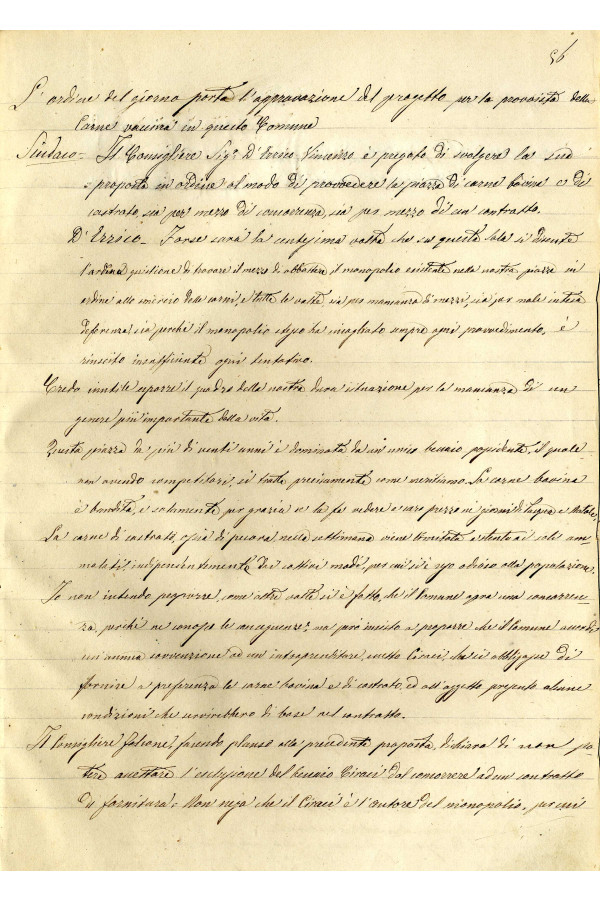 56
L'ordine del giorno porta l'approvazione del progetto per la provvista della
Carne vaccina in questo Comune
Sindaco = Il Consigliere Sig.r D'Errico Vincenzo è pregato di svolgere la sua
proposta in ordine al modo di provvedere la piazza di carne bovina e di
castrato, sia per mezzo di concorrenza, sia per mezzo di un contratto.
D'Errico = Forse sarà la centesima volta che su questa sala si discute
l'ardua quistione di trovare il mezzo di abbattere il monopolio esistente nella nostra piazza in
ordine allo smercio delle carni, e tutte le volte, sia per mancanza di mezzi, sia per male intesa
deferenza, sia perchè il monopolio stesso ha sempre ogni provvedimento, è
riuscito insufficiente ogni tentativo.
Credo inutile esporre il quadro della nostra dura situazione per la mancanza di un
genere più importante della vita.
Questa piazza da più di venti anni è dominata da un unico beccaio, il quale
non avendo competitori, ci tratta precisamente come meritiamo. La carne bovina
è bandita, e solamente per grazia ce la fa vedere a caro prezzo ne' giorni di Pasqua e Natale.
La carne di castrato, ossia di pecora nella settimana viene limitata a stento ai soli am=
malati, indipendentemente da' cattivi modi, per cui si è reso odioso alla popolazione.
Io non intendo proporre, come altre volte si è fatto, che il Comune apra una concorren=
za, perchè ne conosco le conseguenze; ma però insisto a proporre che il Comune accordi
un'annua sovvenzione ad un intraprenditore, eccetto Ciraci, che si obbligasse di
fornire a preferenza le carne bovina e di castrato, ed all'oggetto presento alcune
condizioni che servirebbero di base nel contratto.
Il Consigliere Falcone, facendo plauso alla precedente proposta, dichiara di non po=
tere accettare l'esclusione del beccaio Ciraci dal concorrere ad un contratto
di fornitura = Non nega che il Ciraci è l'autore del monopolio, per cui